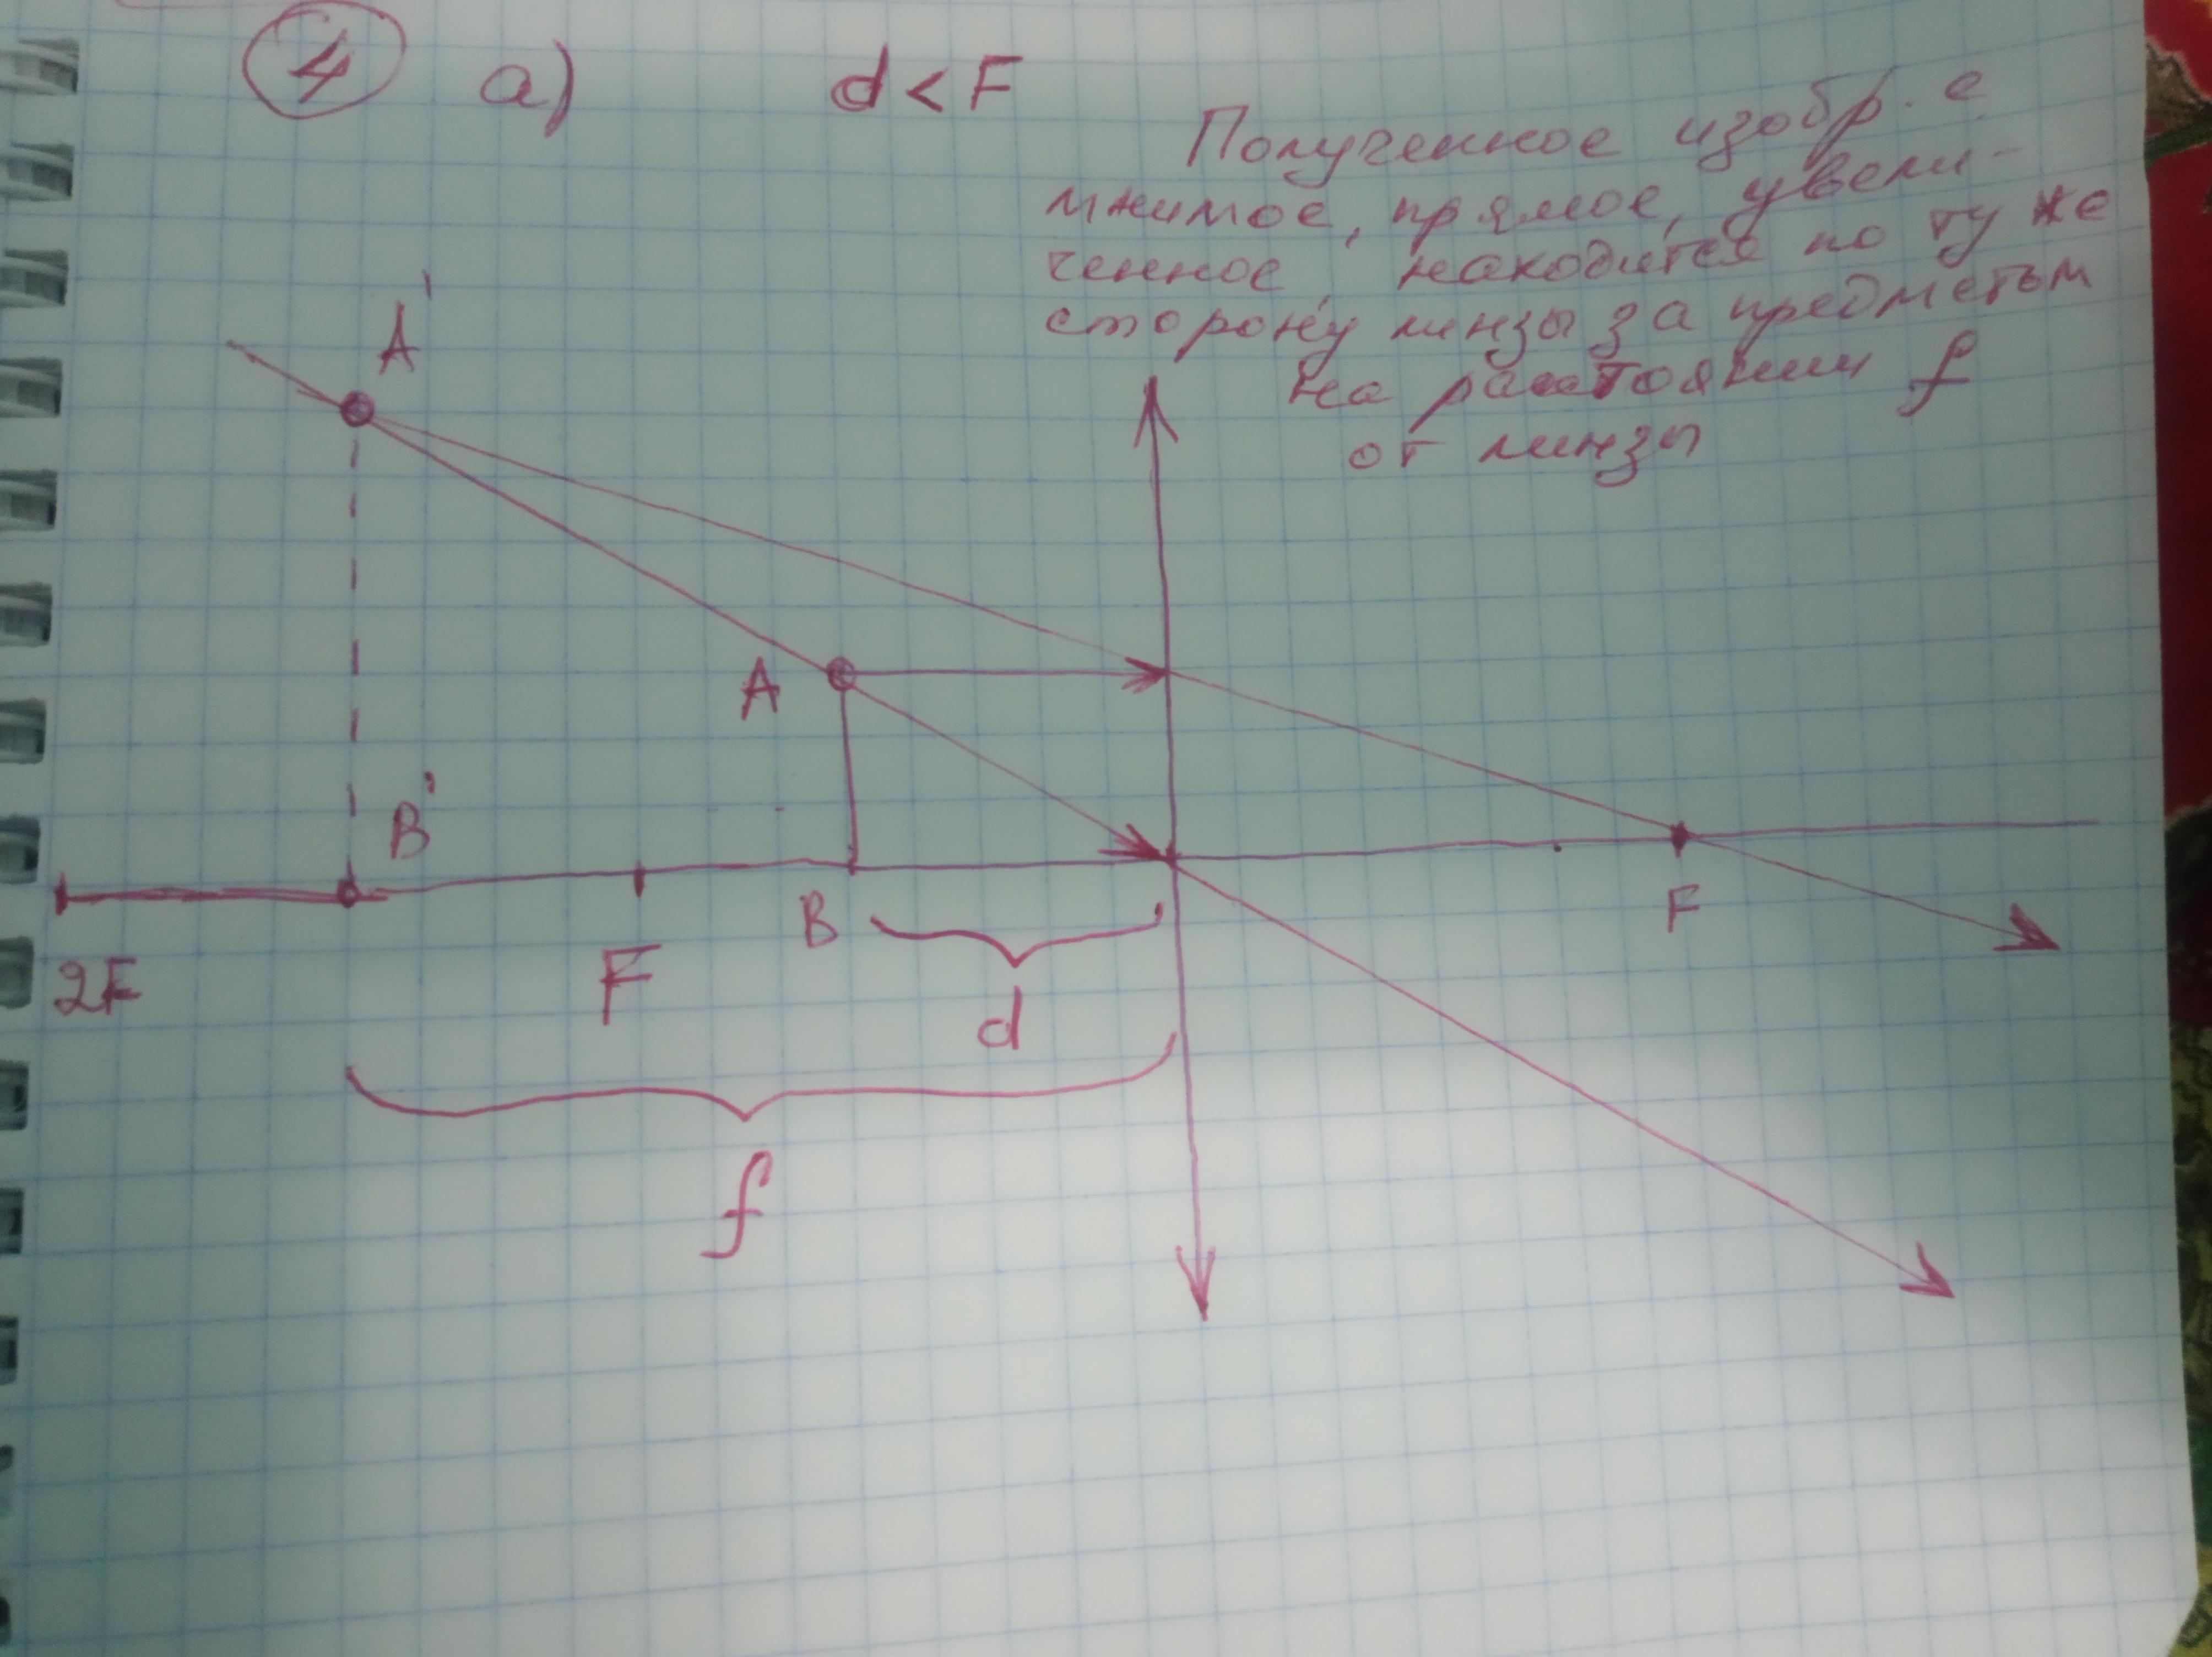 4 а) d < F
Полученное изобр. е
мнимое, прямое, увели-
ченное, находится по ту же
сторону линзы за предметом
на расстоянии f
от линзы
A'
A
B'
B
F
2F
F
d
f